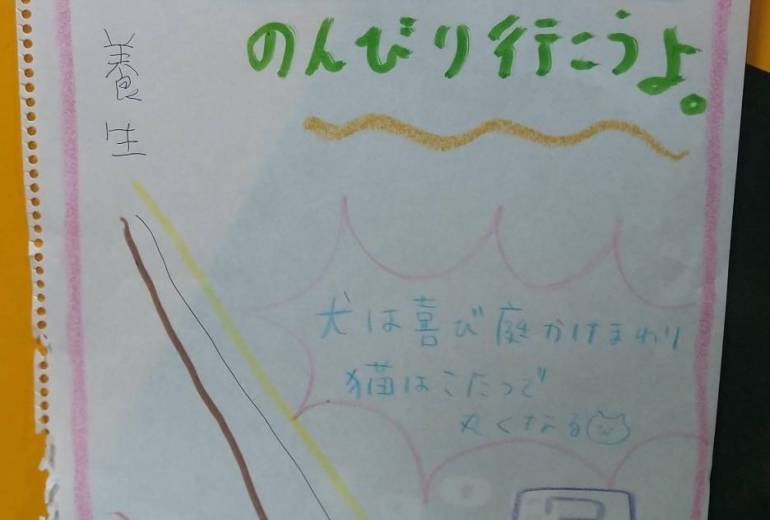 のんびり行こうよ。
養生
犬は喜び庭かけまわり
猫はこたつで
丸くなる